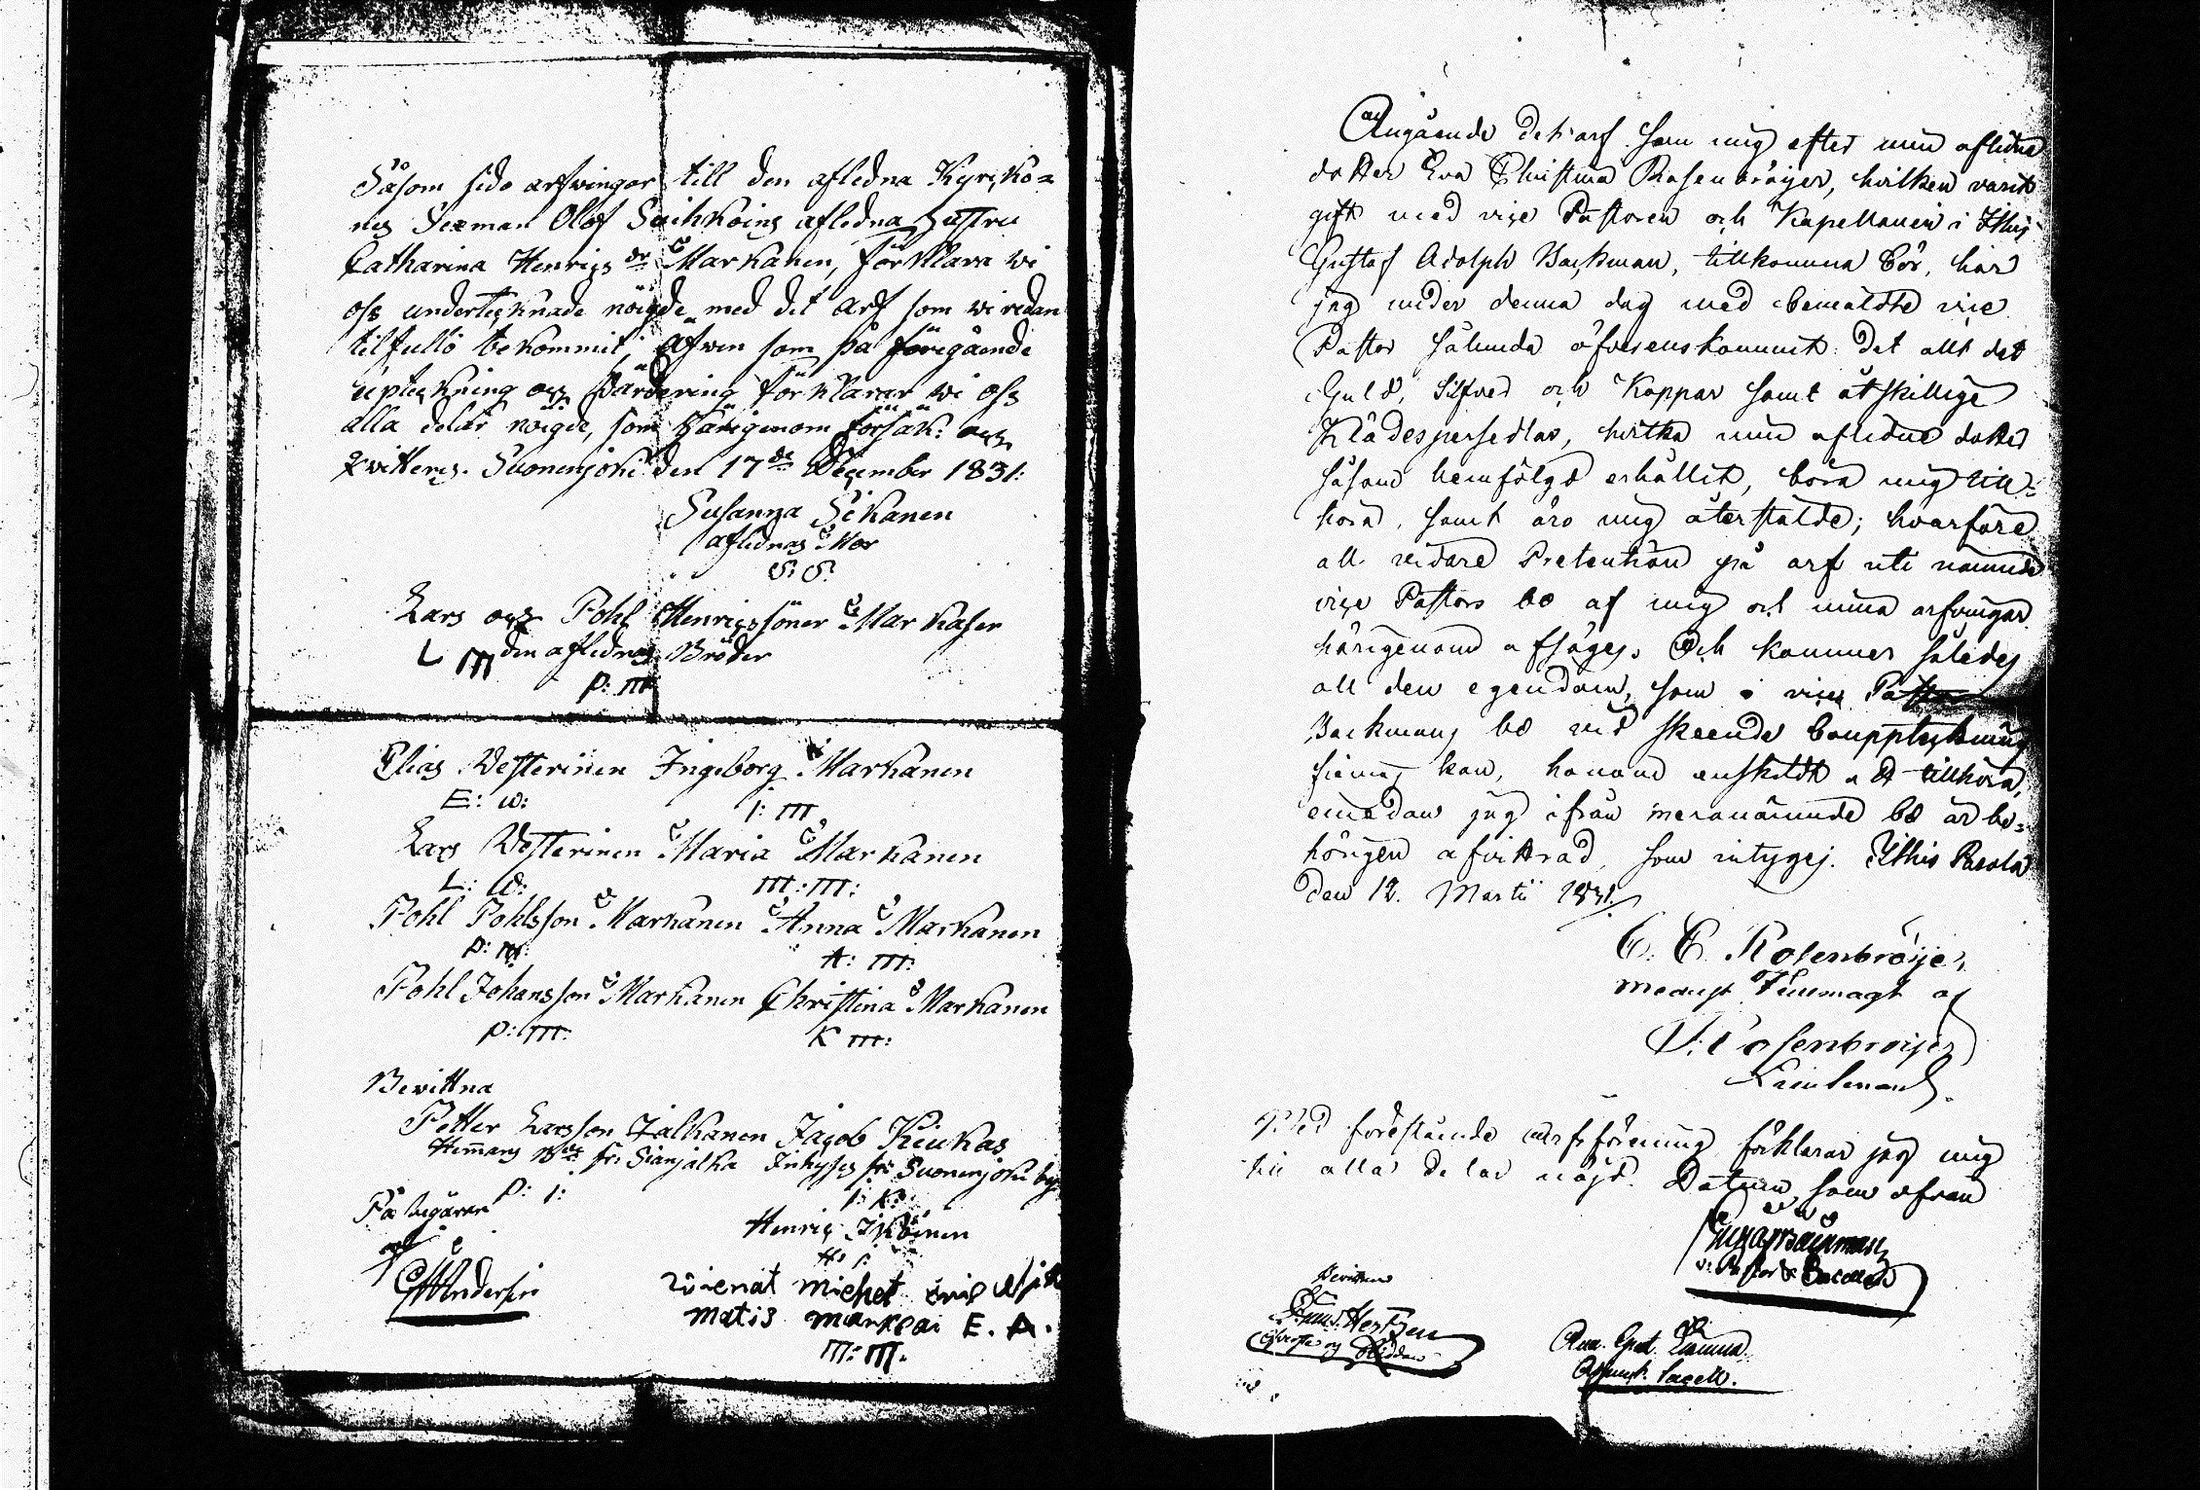 Såsom sido arfwingar till den aflidna Kyrcko=
nes Sexman Olof Saihkoins aflidna Hustru
Catharina Henrics dr Markanen, förklara wi
oss undertecknade nöigde med det arf som wi redan
tilfullo bekommit, äfwen som på föregående
uptekning och Värdering förklarar wi oss
alla delar nöigde, som härigenom försäk: och
qwitteras. Suonenjoki den 17de December 1831:
Susanna Sikanen
aflidnas Mor
S: S:
Lars och Pohl Henricssöner Markaser
L m den aflidnas Bröder
P: m
Elias Westerinen Ingeborg Markanen
E: W: I: m
Lars Westerinen Maria Markanen
L: W: m: m:
Pohl Pohlsson Markanen Anna Markanen
P: M: A: m:
Pohl Johansson Markanen Christina Markanen
P: m: K m:
Bewittna
Petter Larsson Jalkanen Jacob Kiukas
Hemans fr: Sianjalka Inhyses fr: Suonenjoki by
P: I: I: K:
På begäran
Henric Ikäinen
H: I:
Andersin
michel
matis E. A.
m: m.
Angående det arf som mig efter min aflidna
dotter Eva Christina Rosenbröijer, hvilken varit
gift med vice Pastoren och Kapellanen i Ithis
Gustaf Adolph Backman, tillkomma bör, har
jag under denna dag med bemäldte vice
Pastor sålunda öfverenskommit: Det allt det
Guld, Silfver och Koppar samt åtskillige
Klädespersedlar, hvilka min aflidne dotter
såsom hemfölgd erhållit, böra mig till=
höra, samt äro mig återstälde; hvarföre
all vidare Pretention på arf uti nämnde
vice Pastors bo af mig och mina arfvingar
härigenom afsäges. Och kommer således
all den egendom, som i vice Pastor
Backmans bo vid skeende bouppteckning
finnas kan, honom enskildt at tillhöra,
emedan jag ifrån meranämnde bo är be=
hörigen afvittrad, som intygas. Ithis
den 12. Martii 1831.
C. C. Rosenbröijer,
medelst Fullmagt af
Rosenbroijer
Lieutenant.
Med förestående arfsförening förklarar jag mig
till alla delar nöjd. Datum, som ofvan
G Backman
v. Pastor
Bevittna
Hertzen